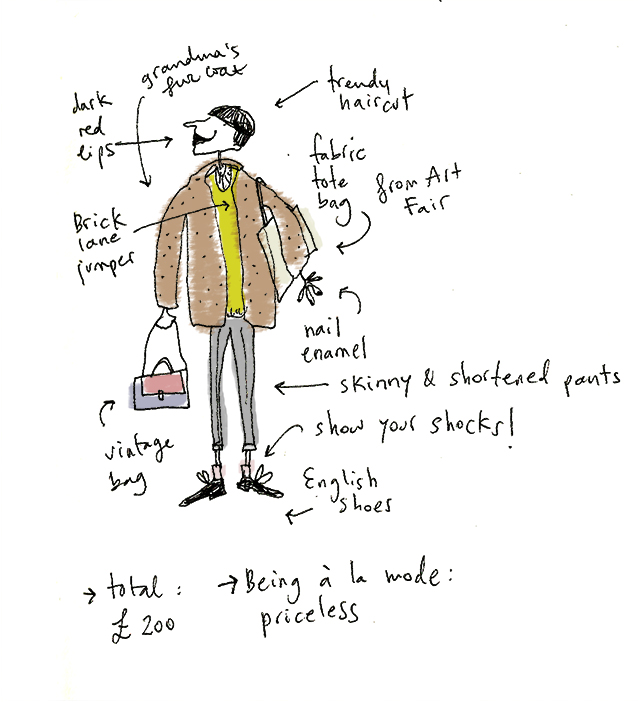 grandma's
fur coat
trendy
haircut
dark
red
lips
fabric
tote
bag
from Art
Fair
Brick
lane
jumper
nail
enamel
skinny & shortened pants
show your shocks!
vintage
bag
English
shoes
→ total :
£ 200
→ Being à la mode :
priceless